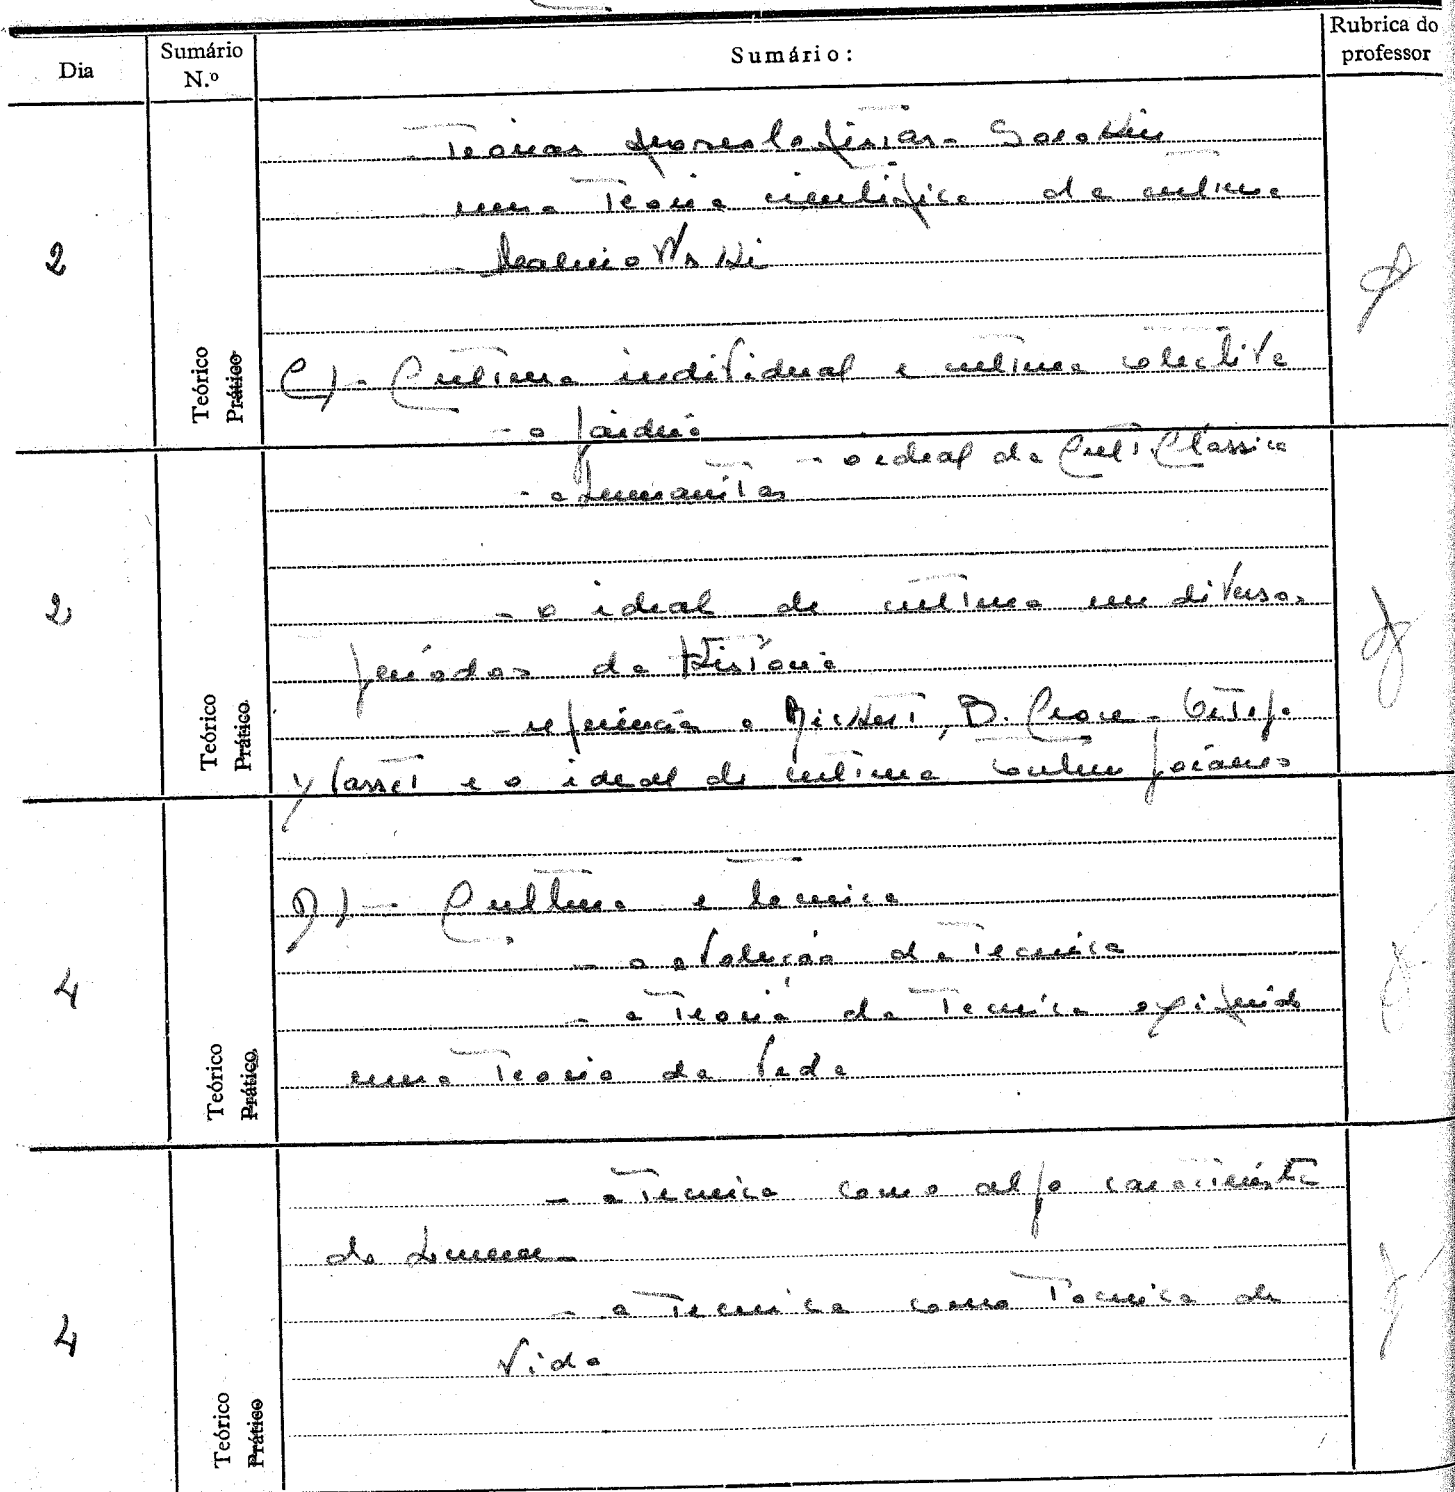 Dia
Sumário N.º
Sumário:
Rubrica do professor
2
Teórico
Prático
Teorias - Sorokin
uma Teoria cientifica da cultura
- Malinowski
C) - Cultura individual e cultura colectiva
- a paideia
2
Teórico
Prático
- o ideal da Cult. Clássica
- a humanitas
- o ideal de cultura em diversos
periodos da História
- referência a Rickert, B. Croce - Ortega
y Gasset e o ideal de cultura contemporâneo
4
Teórico
Prático
D) - Cultura e tecnica
- a evolução da Tecnica
- a Teoria da Tecnica exigindo
uma Teoria da Vida
4
Teórico
Prático
- a Tecnica como algo caracterista
do humano
- a Tecnica como Tecnica de
Vida